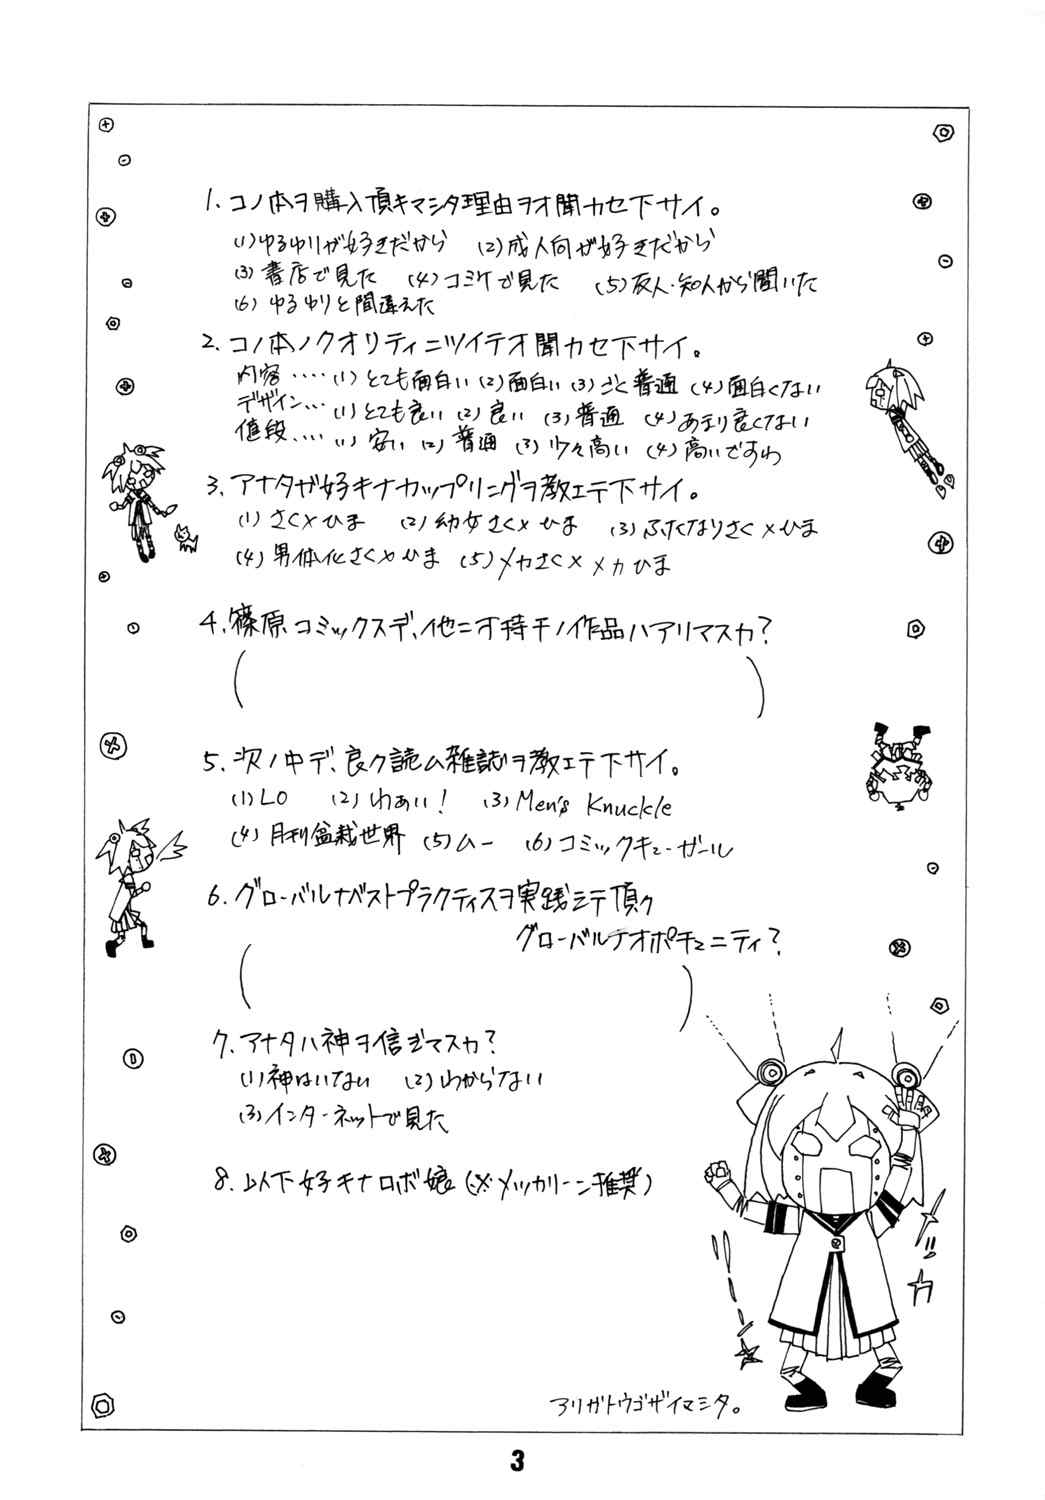 1. コノ本ヲ購入頂キマシタ理由ヲオ聞カセ下サイ。
(1)ゆるゆりが好きだから (2)成人向が好きだから
(3)書店で見た (4)コミケで見た (5)友人・知人から聞いた
(6)ゆるゆりと間違えた
2. コノ本ノクオリティニツイテオ聞カセ下サイ。
内容‥‥(1)とても面白い (2)面白い (3)ごく普通 (4)面白くない
デザイン…(1)とても良い (2)良い (3)普通 (4)あまり良くない
値段‥‥(1)安い (2)普通 (3)少々高い (4)高いですわ
3. アナタガ好キナカップリングヲ教エテ下サイ。
(1)さく×ひま (2)幼女さく×ひま (3)ふたなりさく×ひま
(4)男体化さく×ひま (5)メカさく×メカひま
4. 篠原コミックスデ、他ニオ持チノ作品ハアリマスカ?
( )
5. 次ノ中デ、良ク読ム雑誌ヲ教エテ下サイ。
(1)LO (2)わぁい! (3)Men's Knuckle
(4)月刊盆栽世界 (5)ムー (6)コミックキューガール
6. グローバルナベストプラクティスヲ実践シテ頂ク
グローバルナオポチュニティ?
( )
7. アナタハ神ヲ信ジマスカ?
(1)神はいない (2)わからない
(3)インターネットで見た
8. 以下好キナロボ娘(※メッカリーン推奨)
ﾋﾟｯｶ
アリガトウゴザイマシタ。
3